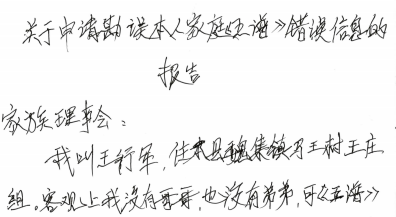 关于申请勘误本人家庭《王海》错误信息的
报告
家族理事会：
我叫王行军，住本县魏集镇乃王村王庄
组。客观上我没有哥哥，也没有弟弟，可《王海》